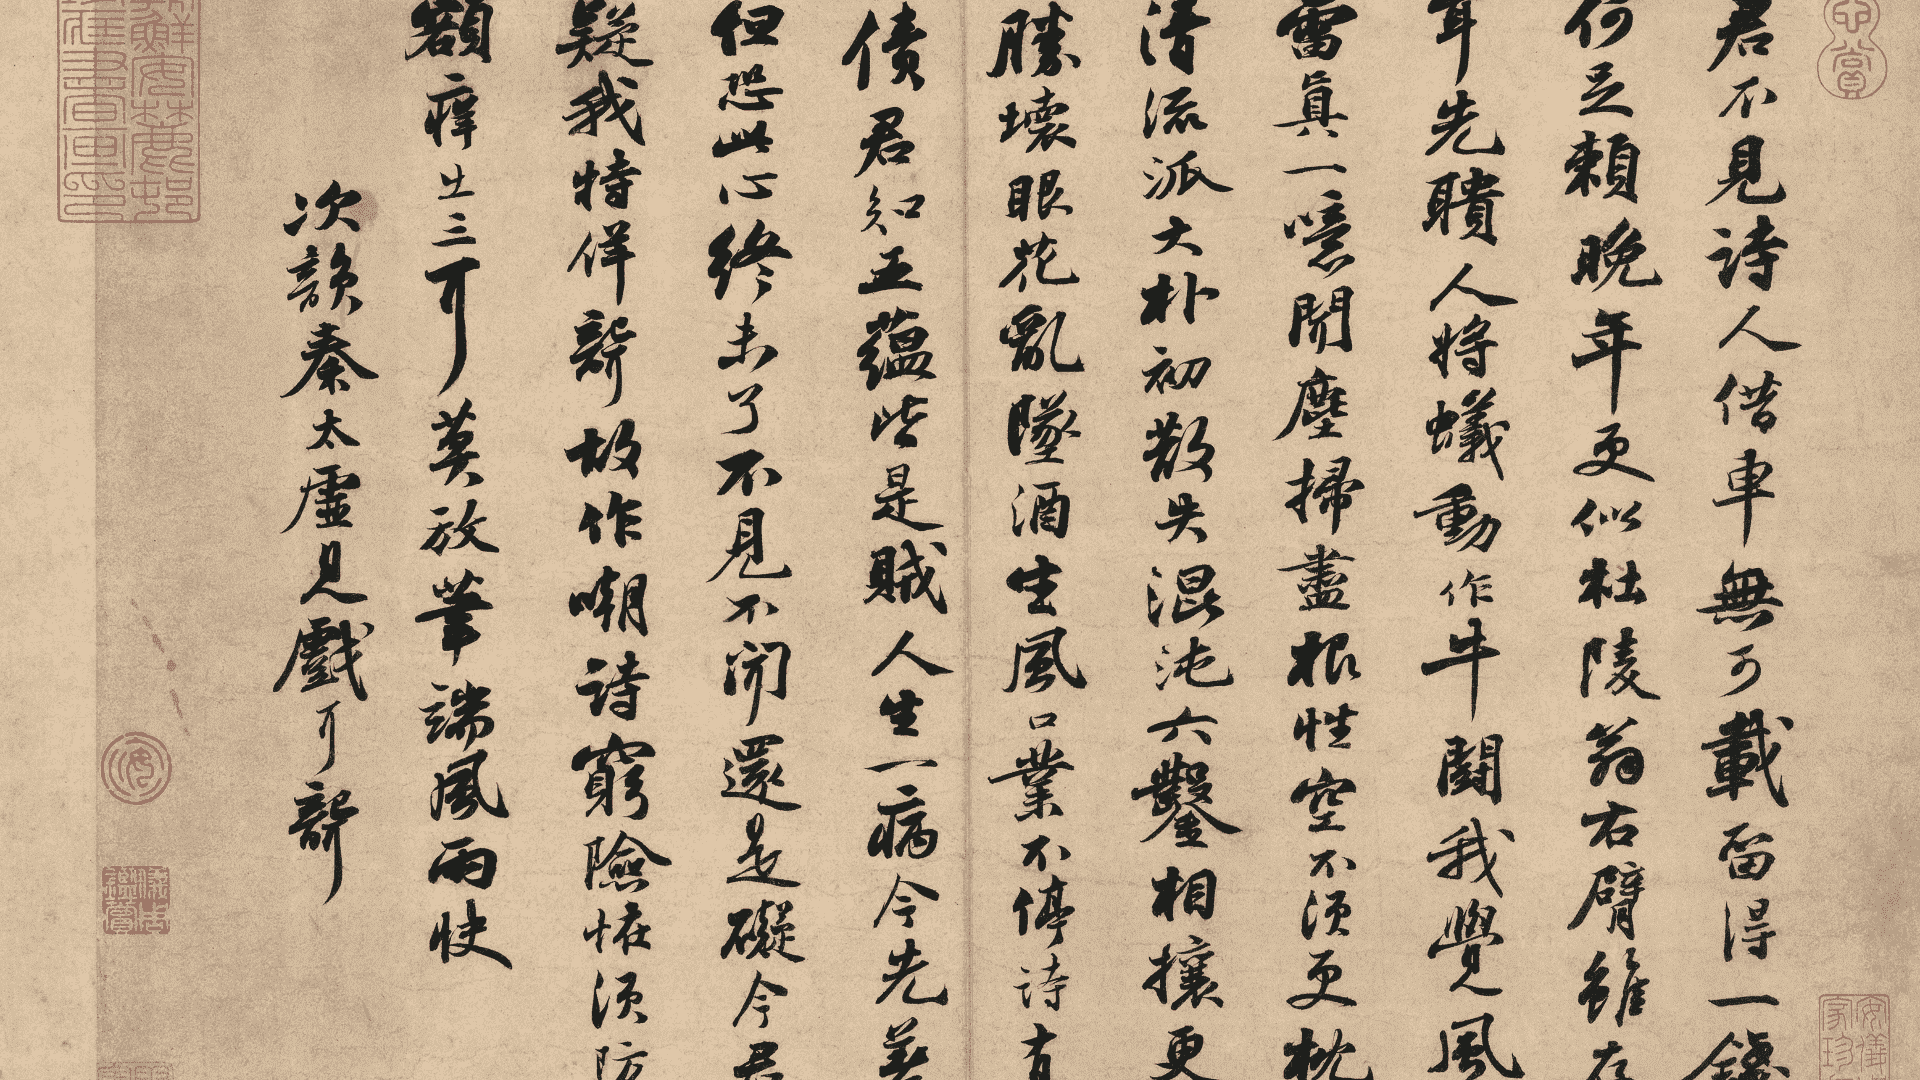 心賞
君不見詩人借車無可載留得一錢
何足賴晚年更似杜陵翁右臂雖存
耳先聵人將蟻動作牛鬭我覺風
雷真一噫聞塵掃盡根性空不須更枕
清流派大朴初散失混沌六鑿相攘更
勝壞眼花亂墜酒生風口業不停詩有
債君知五蘊皆是賊人生一病今先差
但恐此心終未了不見不聞還是礙今君
疑我特佯聾故作嘲詩窮險怪須防
額癢出三耳莫放筆端風雨快
次韻秦太虛見戲耳聾
儀周鑑賞